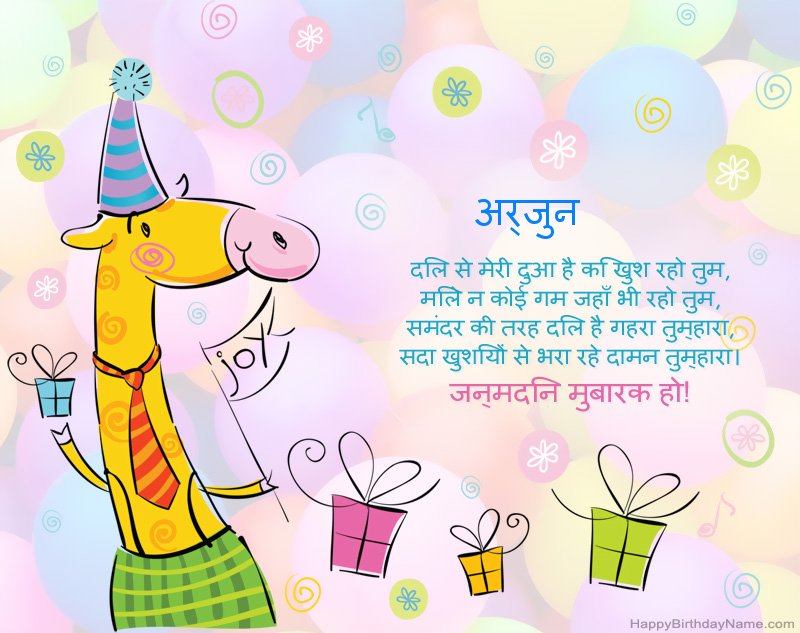 joy
अर्जुन
दिल से मेरी दुआ है कि खुश रहो तुम,
मिले न कोई गम जहाँ भी रहो तुम,
समंदर की तरह दिल है गहरा तुम्हारा,
सदा खुशियों से भरा रहे दामन तुम्हारा।
जन्मदिन मुबारक हो!
HappyBirthdayName.com